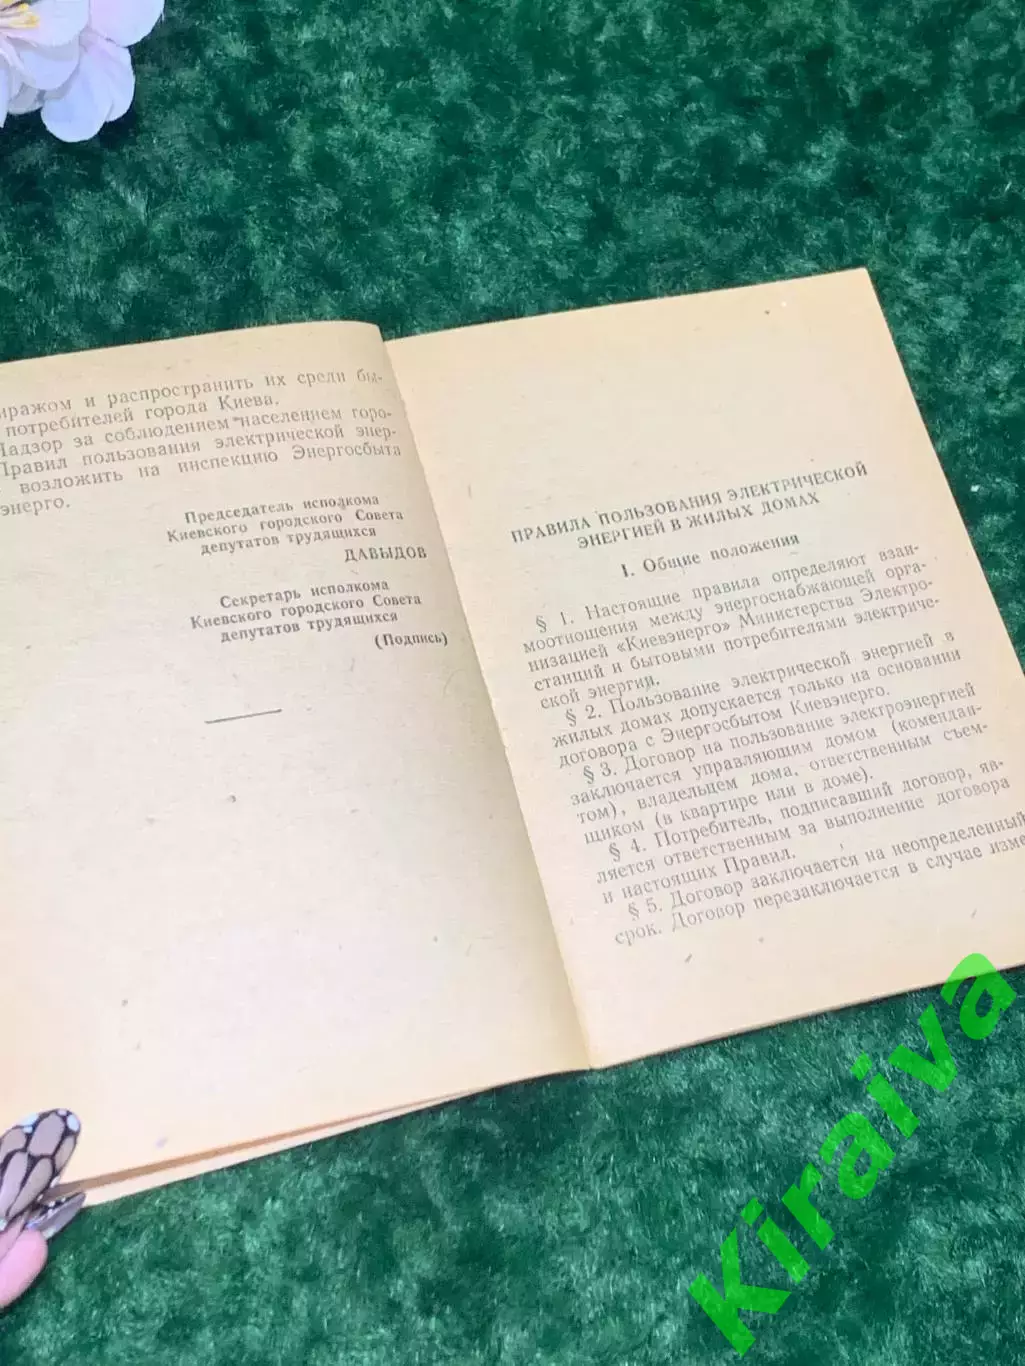 иражом и распространить их среди бы-
потребителей города Киева.
Надзор за соблюдением населением горо-
Правил пользования электрической энер-
возложить на инспекцию Энергосбыта
энерго.
Председатель исполкома
Киевского городского Совета
депутатов трудящихся
ДАВЫДОВ
Секретарь исполкома
Киевского городского Совета
депутатов трудящихся
(Подпись)
ПРАВИЛА ПОЛЬЗОВАНИЯ ЭЛЕКТРИЧЕСКОЙ
ЭНЕРГИЕЙ В ЖИЛЫХ ДОМАХ
I. Общие положения
§ 1. Настоящие правила определяют взаи-
моотношения между энергоснабжающей орга-
низацией «Киевэнерго» Министерства Электро-
станций и бытовыми потребителями электриче-
ской энергии.
§ 2. Пользование электрической энергией в
жилых домах допускается только на основании
договора с Энергосбытом Киевэнерго.
§ 3. Договор на пользование электроэнергией
заключается управляющим домом (комендан-
том), владельцем дома, ответственным съем-
щиком (в квартире или в доме).
§ 4. Потребитель, подписавший договор, яв-
ляется ответственным за выполнение договора
и настоящих Правил.
§ 5. Договор заключается на неопределенный
срок. Договор перезаключается в случае изме
Kiraiva